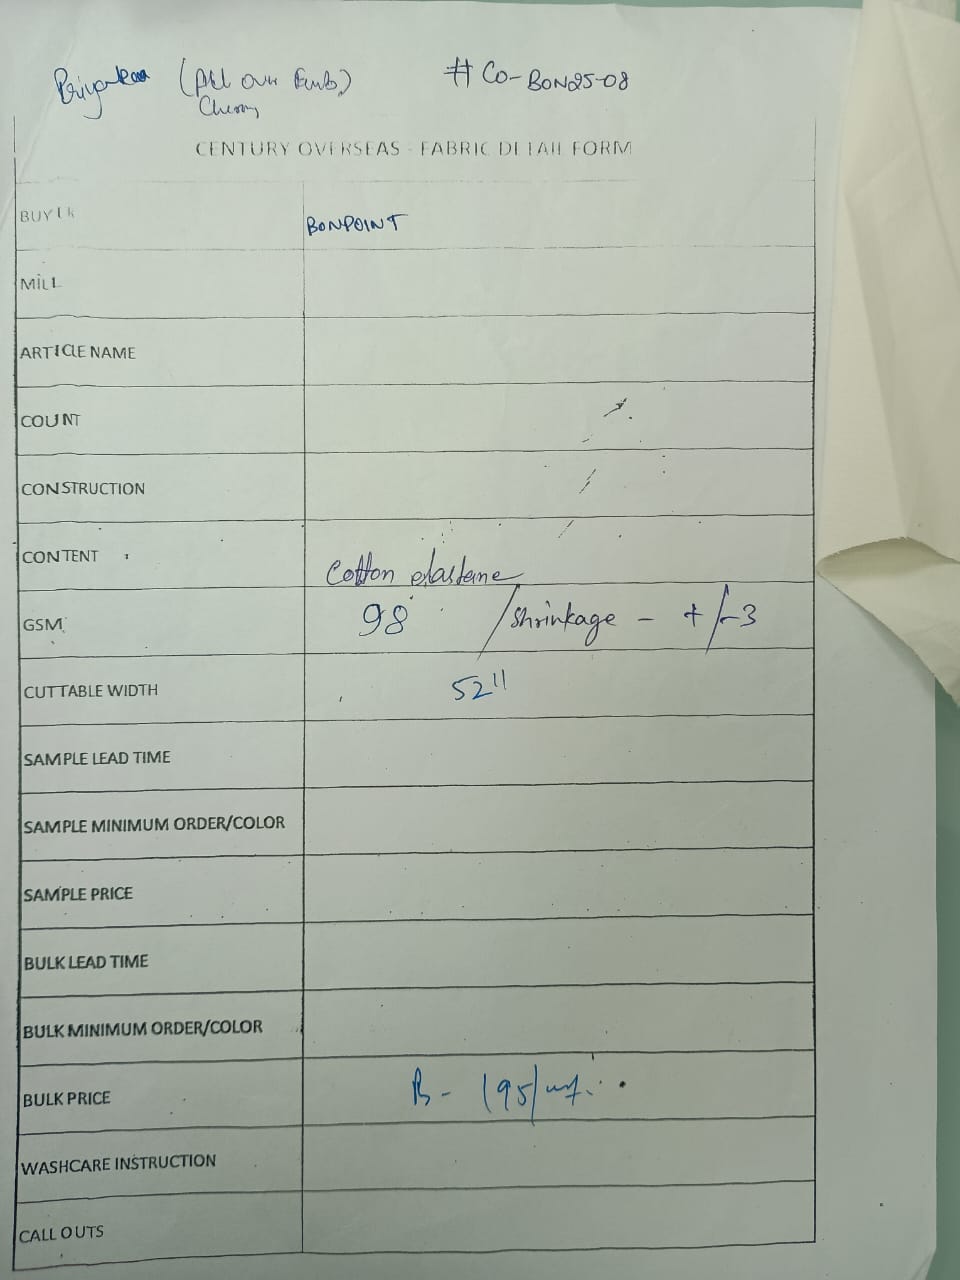 Priyankaa (All Over Emb) # CO-BON25-08
Cherry
CENTURY OVERSEAS - FABRIC DETAIL FORM
BUYER BONPOINT
MILL
ARTICLE NAME
COUNT
CONSTRUCTION
CONTENT Cotton elastane
GSM 98 / Shrinkage - +/-3
CUTTABLE WIDTH 52"
SAMPLE LEAD TIME
SAMPLE MINIMUM ORDER/COLOR
SAMPLE PRICE
BULK LEAD TIME
BULK MINIMUM ORDER/COLOR
BULK PRICE B- 195/
WASHCARE INSTRUCTION
CALL OUTS